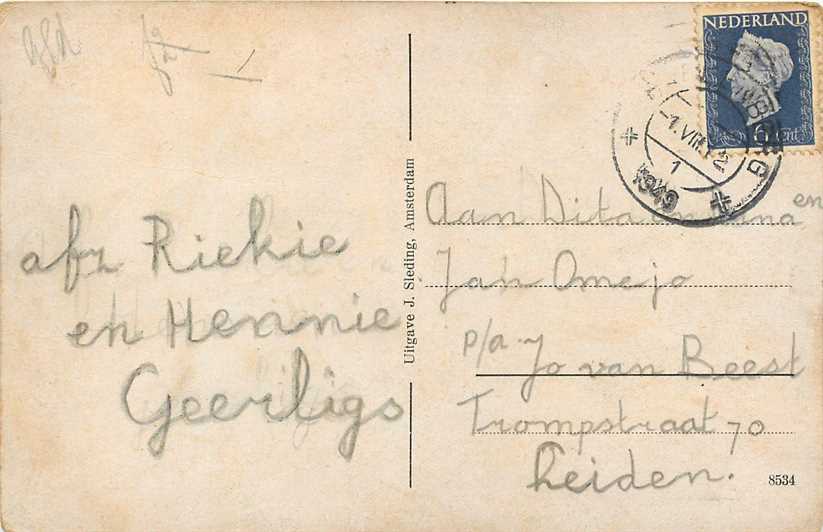 afz Riekie
en Hennie
Geerligs
Uitgave J. Sleding, Amsterdam
NEDERLAND
6 cent
-1.VIII.12
1
1949
en
Aan Dita en
Jan Omejo
p/a. Jo van Beest
Trompstraat 70
Leiden.
8534